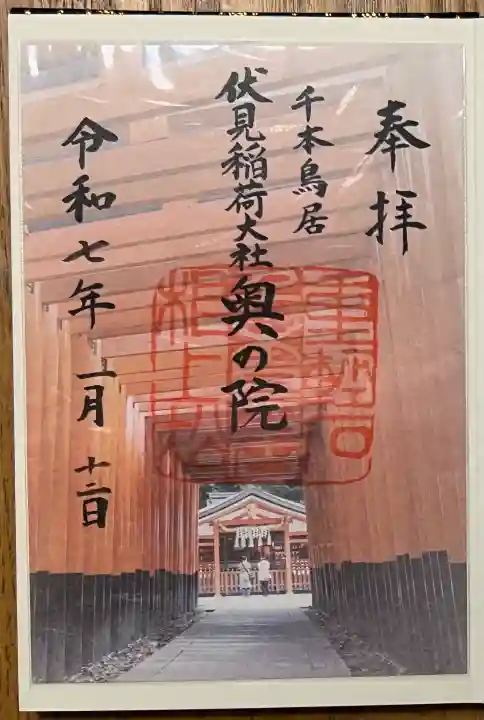 奉拝
千本鳥居
伏見稲荷大社奥の院
令和七年一月十二日